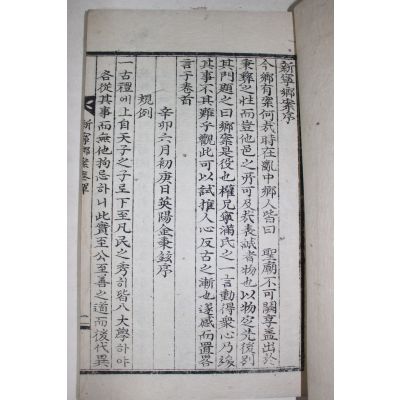 新寧鄕案序
今鄕有案何哉時在亂中鄕人皆曰 聖廟不可闕享盖出於
秉彛之性而豈他邑之所可及哉表誠者物也以物之先後列
其門題之曰鄕案是役也權兄寧滿氏之一言動得衆心乃緩
其事不其難乎觀此可以試推人心反古之漸也遂感而畧
言于卷首
辛卯六月初庚日英陽金秉鉉序
規例
一古禮에上自天子之子로下至凡民之秀히皆入大學하야
各從其事而無他拘忌하니此實至公至善之道而後代異
新寧鄕案卷單
一